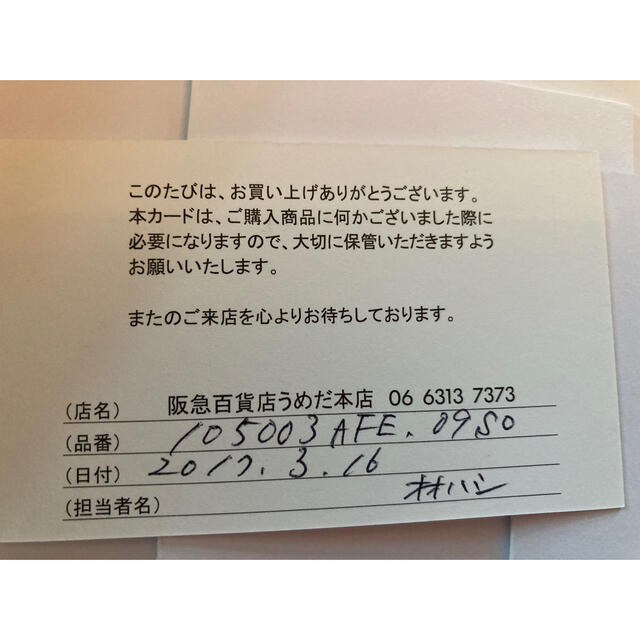 このたびは、お買い上げありがとうございます。
本カードは、ご購入商品に何かございました際に
必要になりますので、大切に保管いただきますよう
お願いいたします。
またのご来店を心よりお待ちしております。
(店名) 阪急百貨店うめだ本店 06 6313 7373
(品番) 105003AFE.09S0
(日付) 2017.3.16
(担当者名) オオハシ